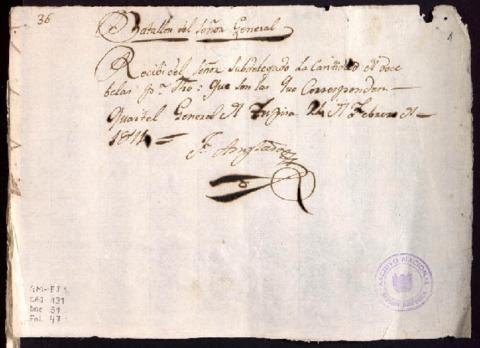 36
Batallon del Señor General
Recibi del Señor Subdelegado la Cantidad de doce
belas pr. Tio: que son las que Corresponden
Quartel General de 24 de Febrero de
1814
ARCHIVO NACIONAL
GM-
CAJ 131
DOC 31
Fol 47